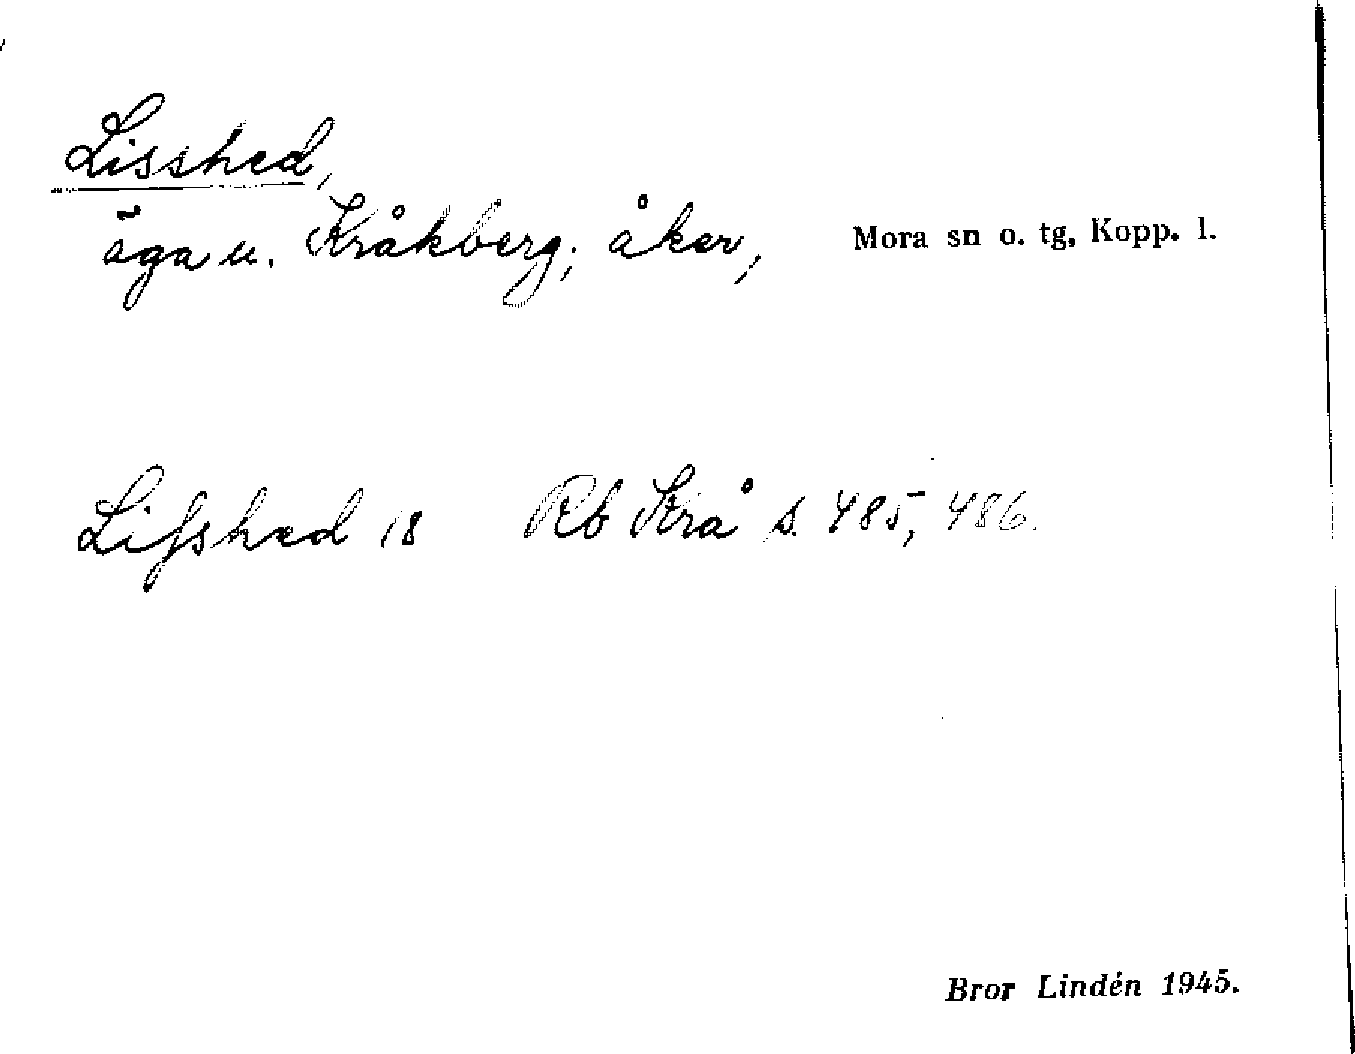 Lisshed,
äga u. Kråkberg; åker, Mora sn o. tg, Kopp. l.
Lifshed 18 Rb Krå s. 485, 486.
Bror Lindén 1945.